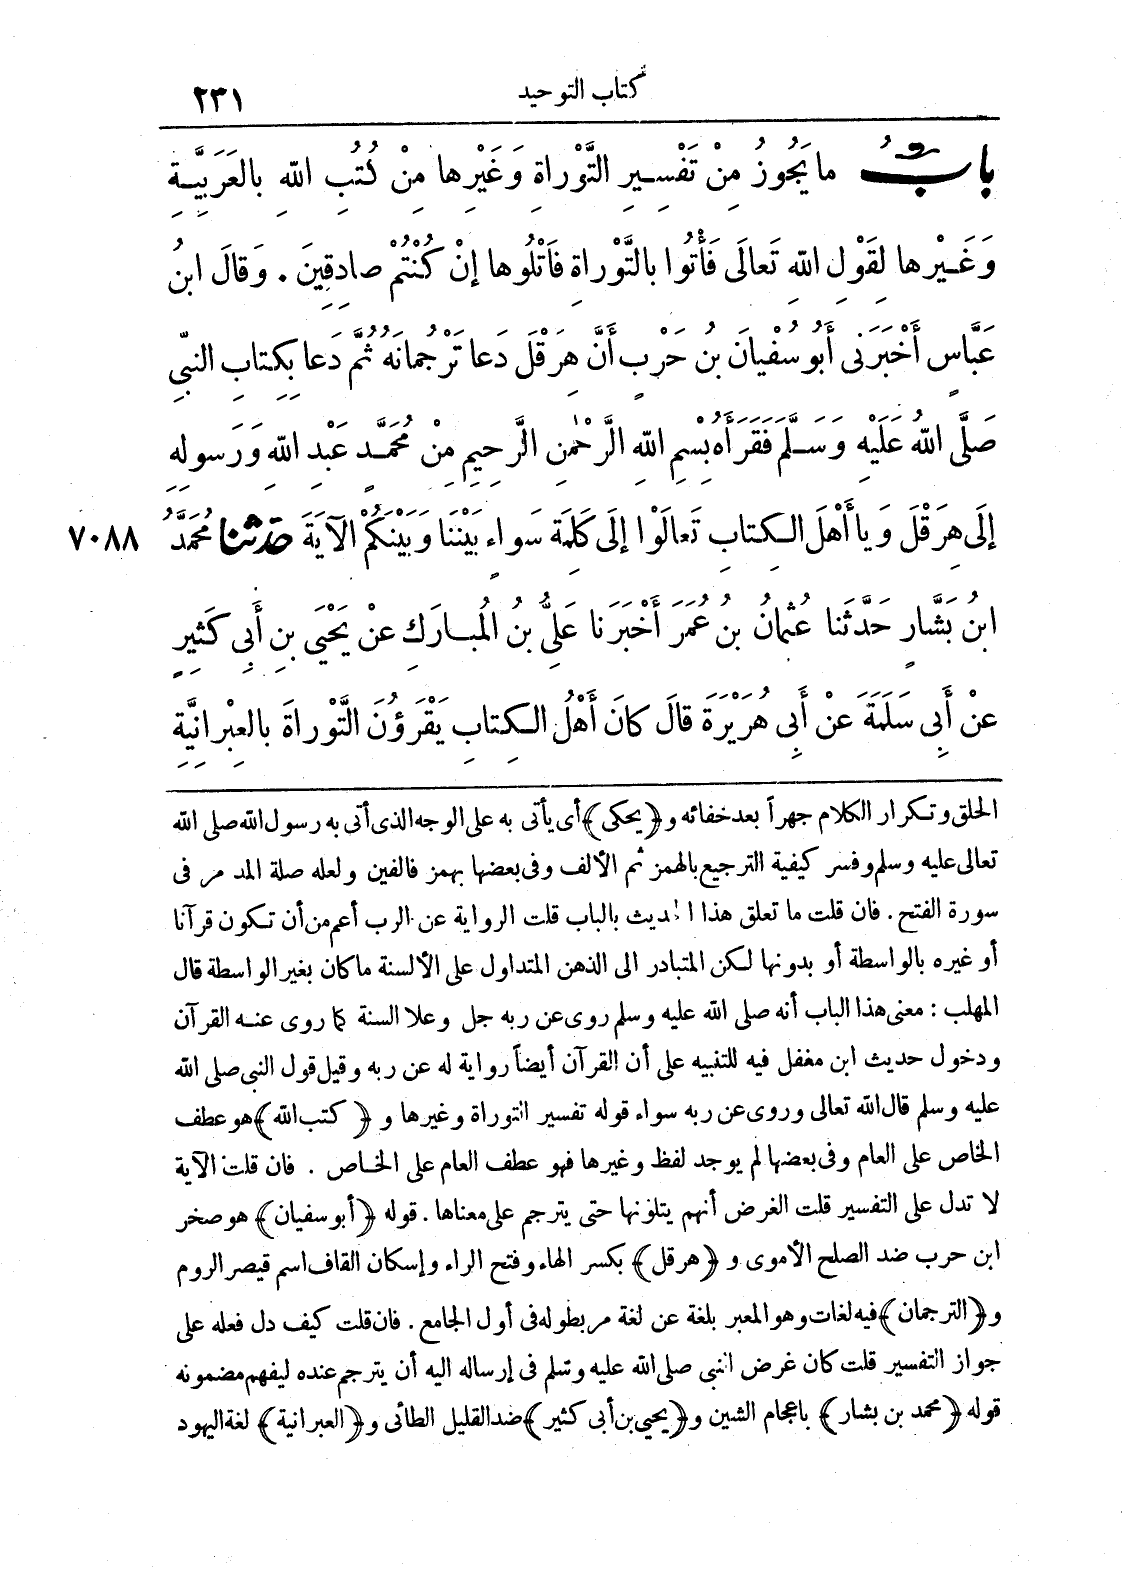 كتاب التوحيد ٢٣١
بابُ ما يَجُوزُ مِنْ تَفْسِيرِ التَّوْراةِ وَغَيْرِها مِنْ كُتُبِ اللهِ بِالعَرَبِيَّةِ
وَغَيْرِها لِقَوْلِ اللهِ تَعالَى فَأْتُوا بالتَّوْراةِ فَاتْلُوها إنْ كُنْتُمْ صادِقِينَ . وَقالَ ابنُ
عَبَّاسٍ أَخْبَرَنى أَبُو سُفْيانَ بنُ حَرْبٍ أَنَّ هِرَقْلَ دَعا تَرْجُمانَهُ ثُمَّ دَعا بِكِتابِ النبيِّ
صَلَّى اللهُ عَلَيْهِ وَسَلَّمَ فَقَرَأَهُ بِسْمِ اللهِ الرَّحْمنِ الرَّحِيمِ مِنْ مُحَمَّدٍ عَبْدِ اللهِ وَرَسولِهِ
إلَى هِرَقْلَ وَيا أَهْلَ الكِتابِ تَعالَوْا إلَى كَلِمَةٍ سَواءٍ بَيْنَنا وَبَيْنَكُمْ الآيَةَ حدثنا مُحَمَّدُ ٧٠٨٨
ابنُ بَشَّارٍ حَدَّثَنا عُثْمانُ بنُ عُمَرَ أَخْبَرَنا عَلىُّ بنُ المُبارَكِ عنْ يَحْيَى بنِ أَبِى كَثِيرٍ
عنْ أَبِى سَلَمَةَ عنْ أَبِى هُرَيْرَةَ قالَ كانَ أَهْلُ الكِتابِ يَقْرَؤُنَ التَّوْراةَ بالعِبْرانِيَّةِ
الحلق وتكرار الكلام جهراً بعد خفائه و﴿يحكى﴾ أى يأتى به على الوجه الذى أتى به رسول الله صلى الله
تعالى عليه وسلم وفسر كيفية الترجيع بالهمز ثم الألف وفى بعضها بهمز فالفين ولعله صلة المد مر فى
سورة الفتح . فان قلت ما تعلق هذا الحديث بالباب قلت الرواية عن الرب أعم من أن تكون قرآنا
أو غيره بالواسطة أو بدونها لكن المتبادر الى الذهن المتداول على الألسنة ما كان بغير الواسطة قال
المهلب : معنى هذا الباب أنه صلى الله عليه وسلم روى عن ربه جل وعلا السنة كما روى عنه القرآن
ودخول حديث ابن مغفل فيه للتنبيه على أن القرآن أيضاً رواية له عن ربه وقيل قول النبى صلى الله
عليه وسلم قال الله تعالى وروى عن ربه سواء قوله تفسير التوراة وغيرها و ﴿كتب الله﴾ هو عطف
الخاص على العام وفى بعضها لم يوجد لفظ وغيرها فهو عطف العام على الخاص . فان قلت الآية
لا تدل على التفسير قلت الغرض أنهم يتلونها حتى يترجم على معناها . قوله ﴿أبو سفيان﴾ هو صخر
ابن حرب ضد الصلح الأموى و ﴿هرقل﴾ بكسر الهاء وفتح الراء وإسكان القاف اسم قيصر الروم
و﴿الترجمان﴾ فيه لغات وهو المعبر بلغة عن لغة مر بطوله فى أول الجامع . فان قلت كيف دل فعله على
جواز التفسير قلت كان غرض النبى صلى الله عليه وسلم فى إرساله اليه أن يترجم عنده ليفهم مضمونه
قوله ﴿محمد بن بشار﴾ باعجام الشين و﴿يحيى بن أبى كثير﴾ ضد القليل الطائى و﴿العبرانية﴾ لغة اليهود